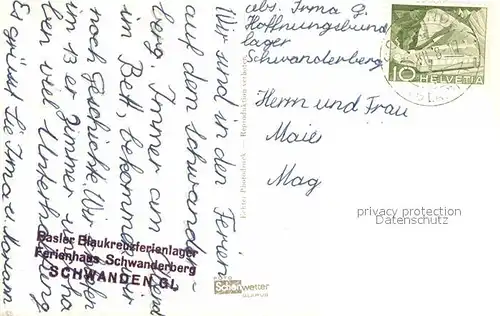 abs. Irma G.
Hoffnungsbund
lager
Schwanderberg
10
HELVETIA
Herrn und Frau
Maier
Mag
Wir sind in den Ferien
auf dem Schwander-
berg. Immer am Abend
im Bett, bekommen wir
noch Geschichte. Wir
im 13 er Zimmer
ben viel Unterhaltung
Es grüsst Sie Irma u. Miriam
Basler Blaukreuzferienlager
Ferienhaus Schwanderberg
SCHWANDEN GL
Echte Photographie — Reproduktion verboten
FOTO
Schönwetter
GLARUS
privacy protection
Datenschutz